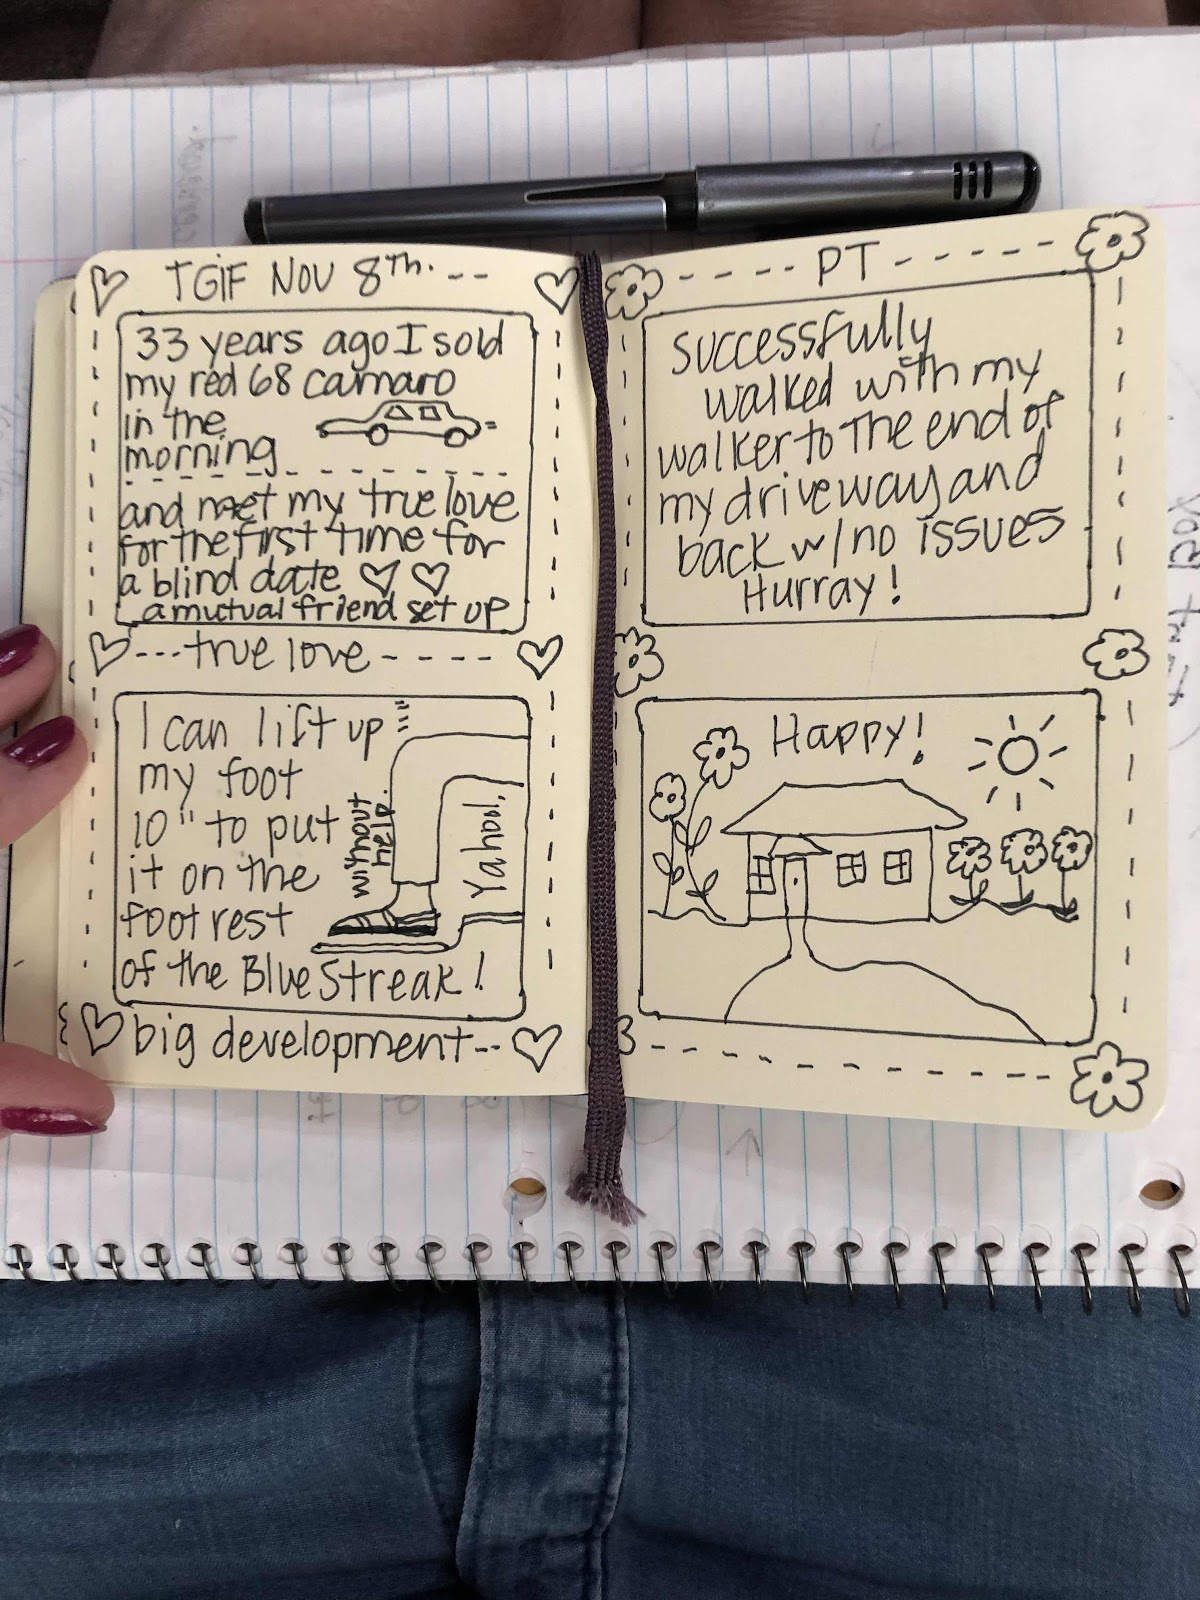 TGIF NOV 8TH.
33 years ago I sold
my red 68 camaro
in the
morning
and met my true love
for the first time for
a blind date
a mutual friend set up
true love
I can lift up
my foot
10" to put
it on the
foot rest
of the Blue Streak!
without
help.
Yahoo!,
big development
PT
Successfully
walked with my
walker to the end of
my driveway and
back w/no issues
Hurray!
Happy!